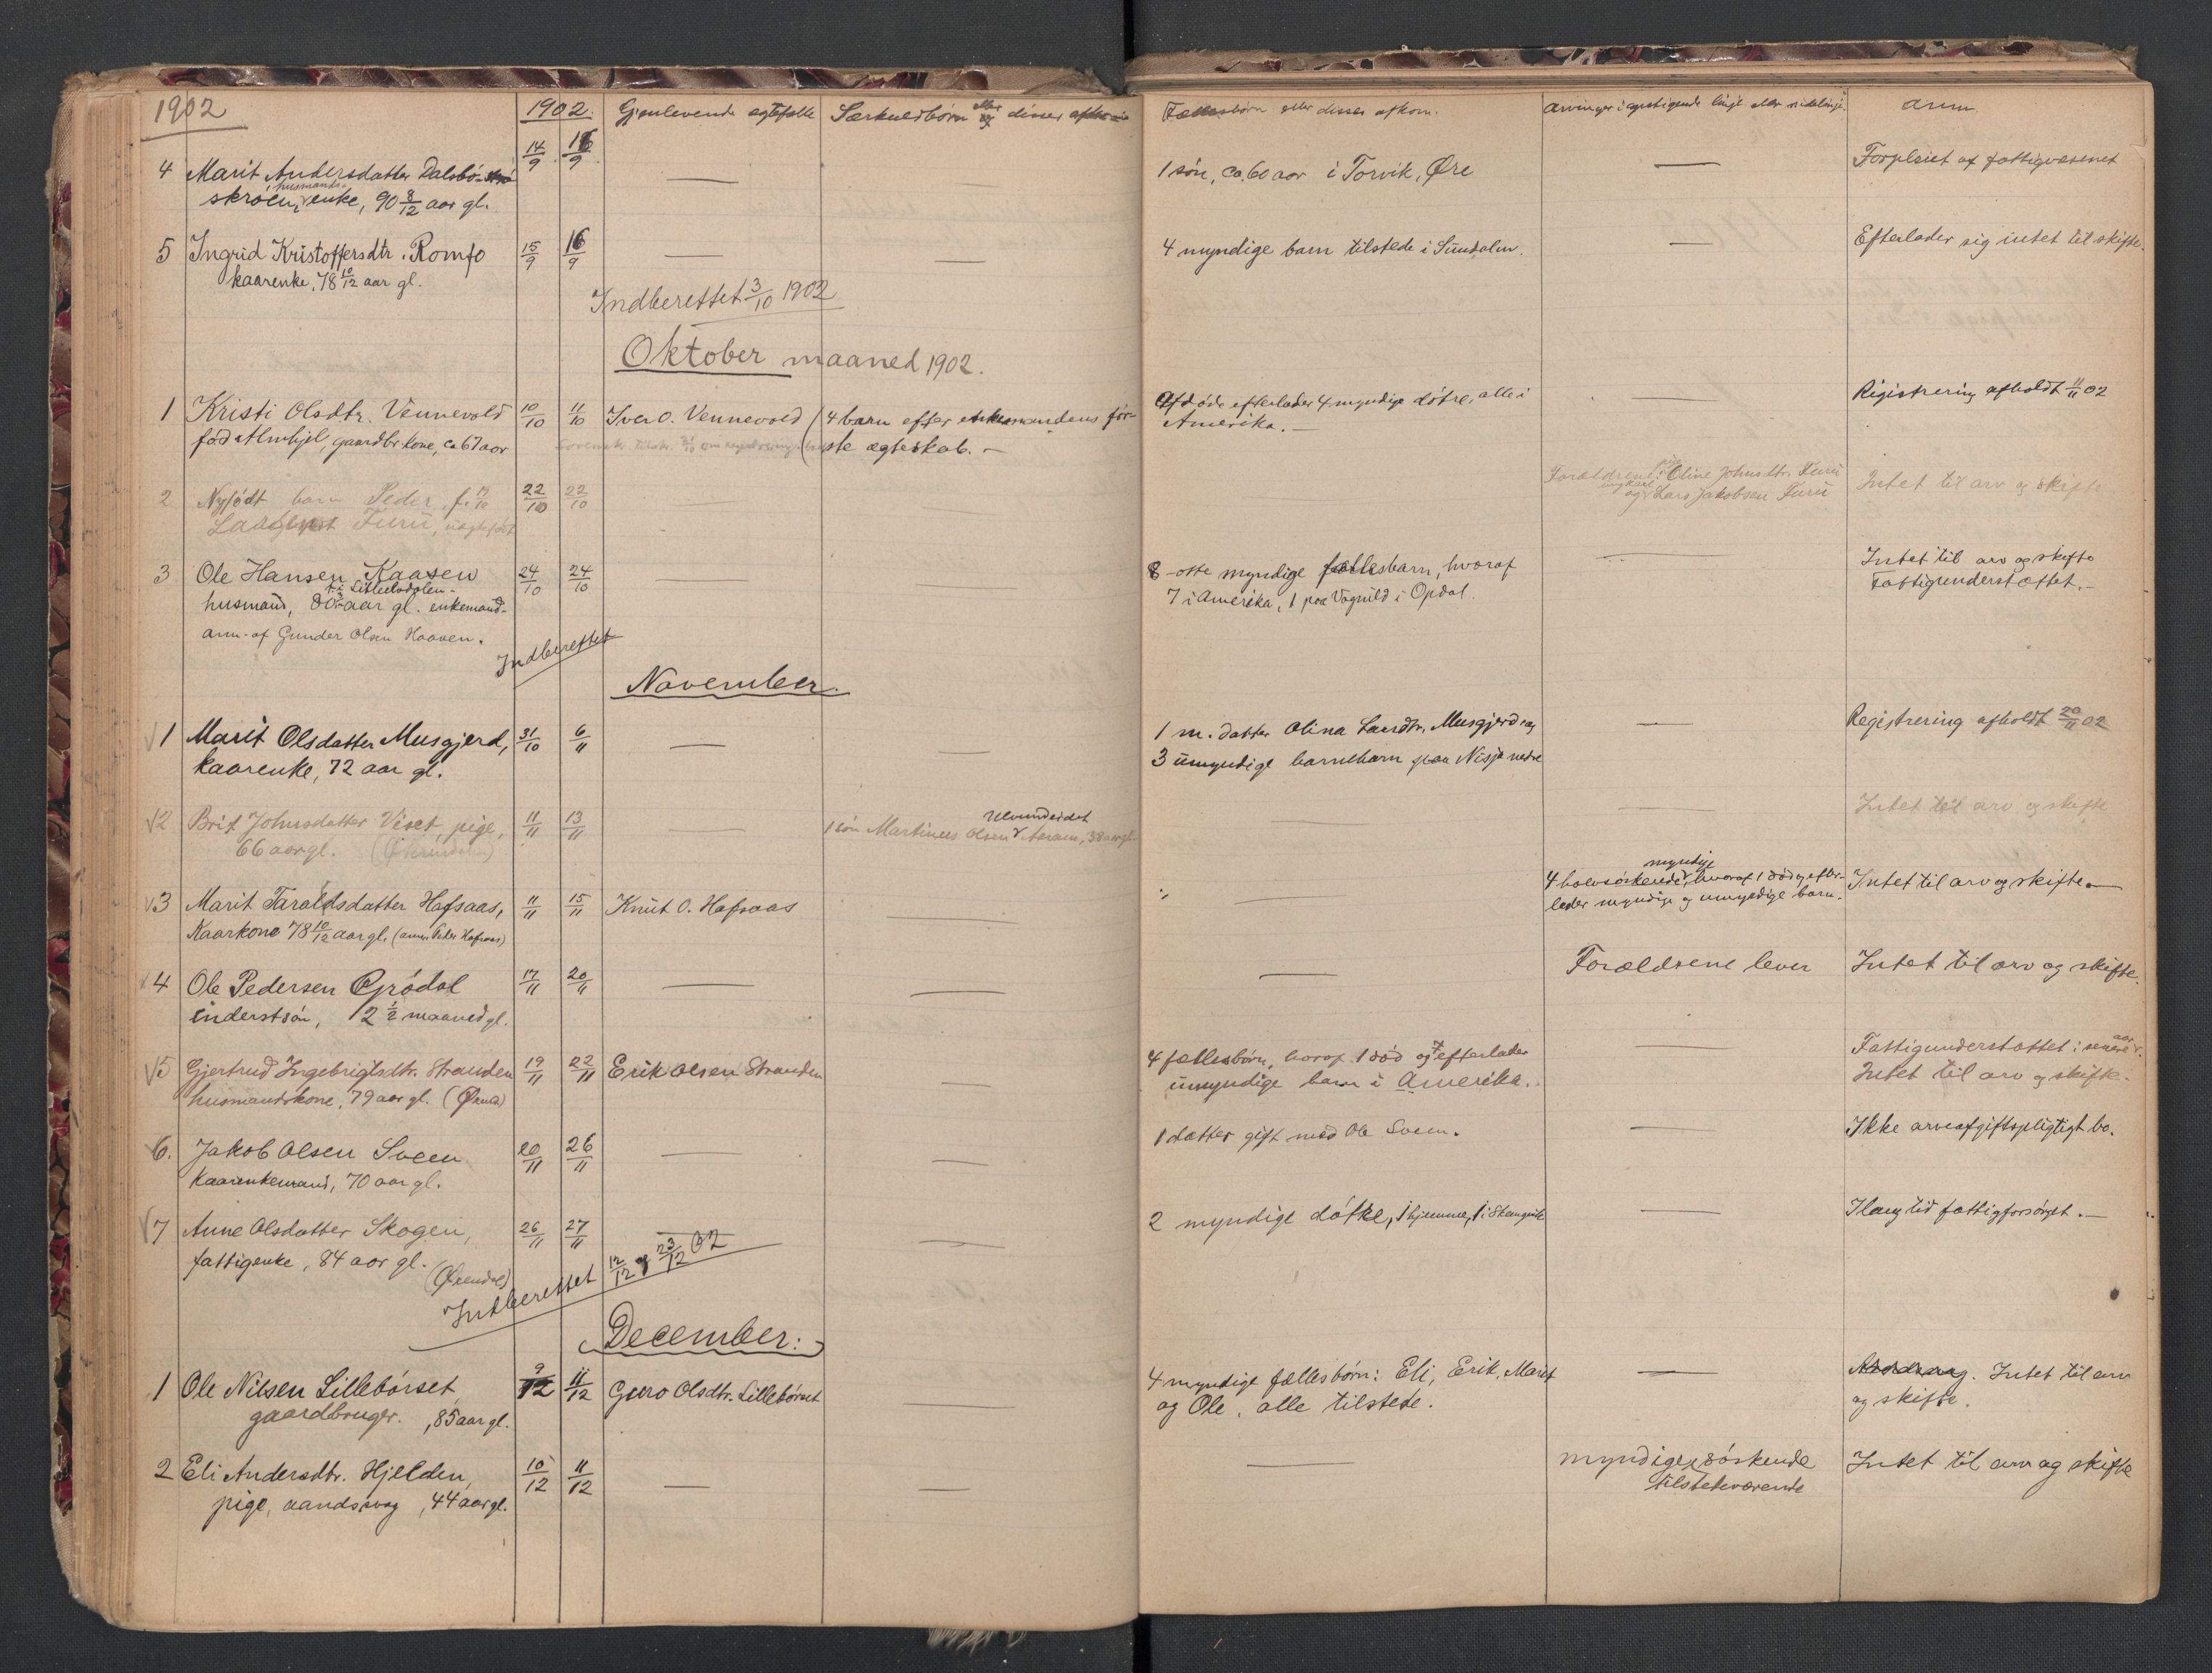 1902
1902. Gjenlevende egtefelle Særkuldbörn eller disses afkom Fællesbörn eller disses afkom. Arvinger i opstigende linje eller sidelinje. Anm.
4 Marit Andersdatter Dalsbö- 14/9 16/9 — — 1 sön, ca. 60 aar i Torvik, Öre — Forpleiet af fattigvæsenet
skröen, husmands-enke, 90 8/12 aar gl.
5 Ingrid Kristoffersdtr. Romfo 15/9 16/9 — — 4 myndige barn tilstede i Sundalen. — Efterlader sig intet til skifte.
kaarenke, 78 10/12 aar gl.
Indberettet 3/10 1902
Oktober maaned 1902.
1 Kristi Olsdtr. Vennevold 10/10 11/10 Iver O. Vennevold (4 barn efter enkemandens för- Afdöde efterlader 4 myndige dötre, alle i — Registrering afholdt 11/11 02
född Almhjel, gaardbr kone, ca 67 aar ste ægteskab. — Amerika. —
2 Nyfödt barn Peder f. 19/10 22/10 22/10 — Forældrene: pige Oline Johnsdtr. Furu Intet til arv og skifte
Furu, uægtefödt og ungkarl Lars Jakobsen Furu
3 Ole Hansen Kaasen 24/10 24/10 8 - otte myndige fællesbarn, hvoraf — Intet til arv og skifte
husmand, 80 aar gl. enkemand- 7 i Amerika, 1 paa Vognild i Opdal. Fattigunderstøttet. —
anm. af Gunder Olsen Haaven.
Indberettet
November.
√1 Marit Olsdatter Musgjerd, 31/10 6/11 — — 1 m. datter Olina Larsdtr. Musgjerd og — Registrering afholdt 20/11 02
kaarenke, 72 aar gl. 3 umyndige barnebarn paa Nisja nedre
√2 Brit Johnsdatter Viset, pige, 11/11 13/11 — 1 sön Martinus Olsen Ulvundeidet, 38 aar gl. — — Intet til arv og skifte
66 aar gl.
√3 Marit Taraldsdatter Hafsaas, 11/11 15/11 Knut O. Hafsaas — — 4 halvsöskende, myndige hvoraf 1 död og efter- Intet til arv og skifte. —
Kaarkone 78 10/12 aar gl. (anm. Peder Hafsaas) lader myndige og umyndige barn.
√4 Ole Pedersen Grödal 17/11 20/11 — — — Forældrene lever Intet til arv og skifte.
inderstsön, 2 1/2 maaned gl.
√5 Gjertrud Ingebrigtsdtr. Stranden 19/11 22/11 Erik Olsen Stranden — 4 fællesbörn, hvoraf 1 död og efterlader — Fattigunderstøttet i senere aar.
husmandskone, 79 aar gl. umyndige barn i Amerika. Intet til arv og skifte.
√6. Jakob Olsen Sveen 20/11 26/11 — — 1 datter gift med Ole Sveen. — Ikke arveafgiftspligtigt bo.
Kaarenkemand, 70 aar gl.
√7 Anne Olsdatter Skogen, 26/11 27/11 — 2 myndige dötre, 1 hjemme, 1 i Stangvik — I lang tid fattigforsörget. —
fattigenke, 84 aar gl.
(Öxendal)
Indberettet 12/12 og 23/12 02
December:
1 Ole Nilsen Lillebörset 9/12 11/12 Guro Olsdtr. Lillebörset — 4 myndige fællesbörn: Eli, Erik, Marit — Intet til arv
gaardbruger. , 85 aar gl. og Ole, alle tilstede. og skifte.
2 Eli Andersdtr. Hjelden, 10/12 11/12 — — — myndige söskende Intet til arv og skifte
pige, aandssvag, 44 aar gl. tilstedeværende